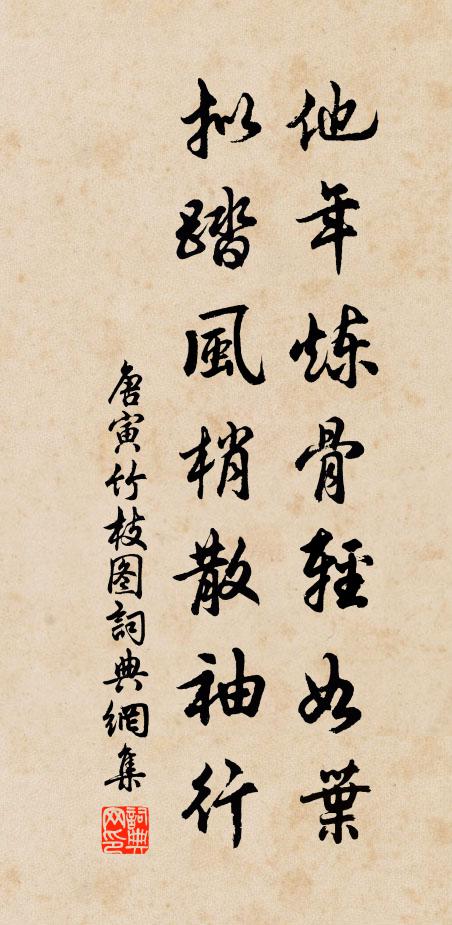 他年炼骨輕如葉
拟踏風梢散袖行
唐寅竹枝图詞典網集
詞典网印